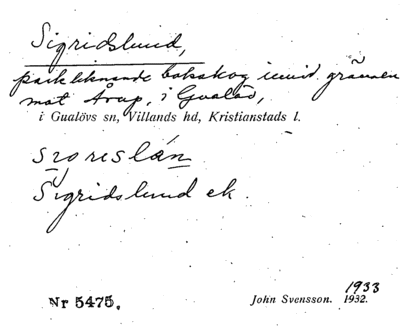 Sigridslund,
parkliknande bokskog invid gränsen
mot Årup, i Gualöv,
i Gualövs sn, Villands hd, Kristianstads l.
Sigridslund ek.
1933
Nr 5475.
John Svensson. 1932.